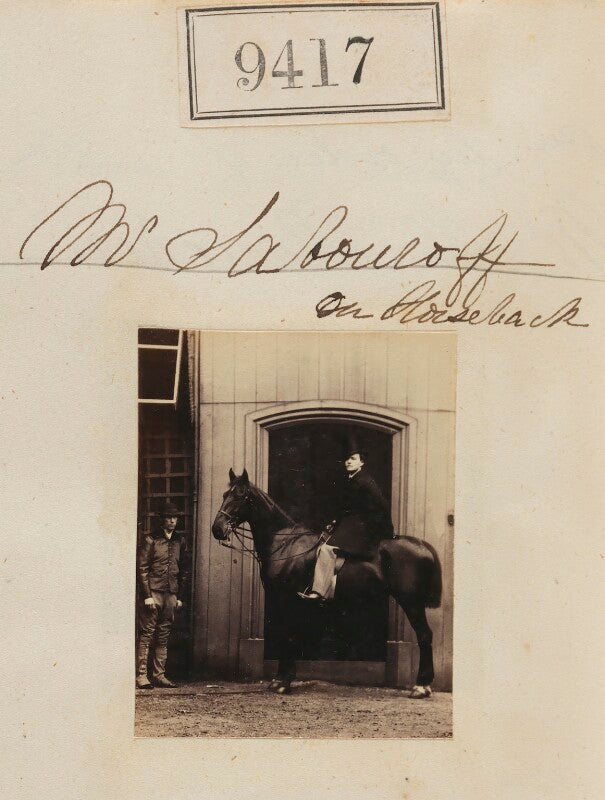 9417
Mr Sabouroff
on Horseback